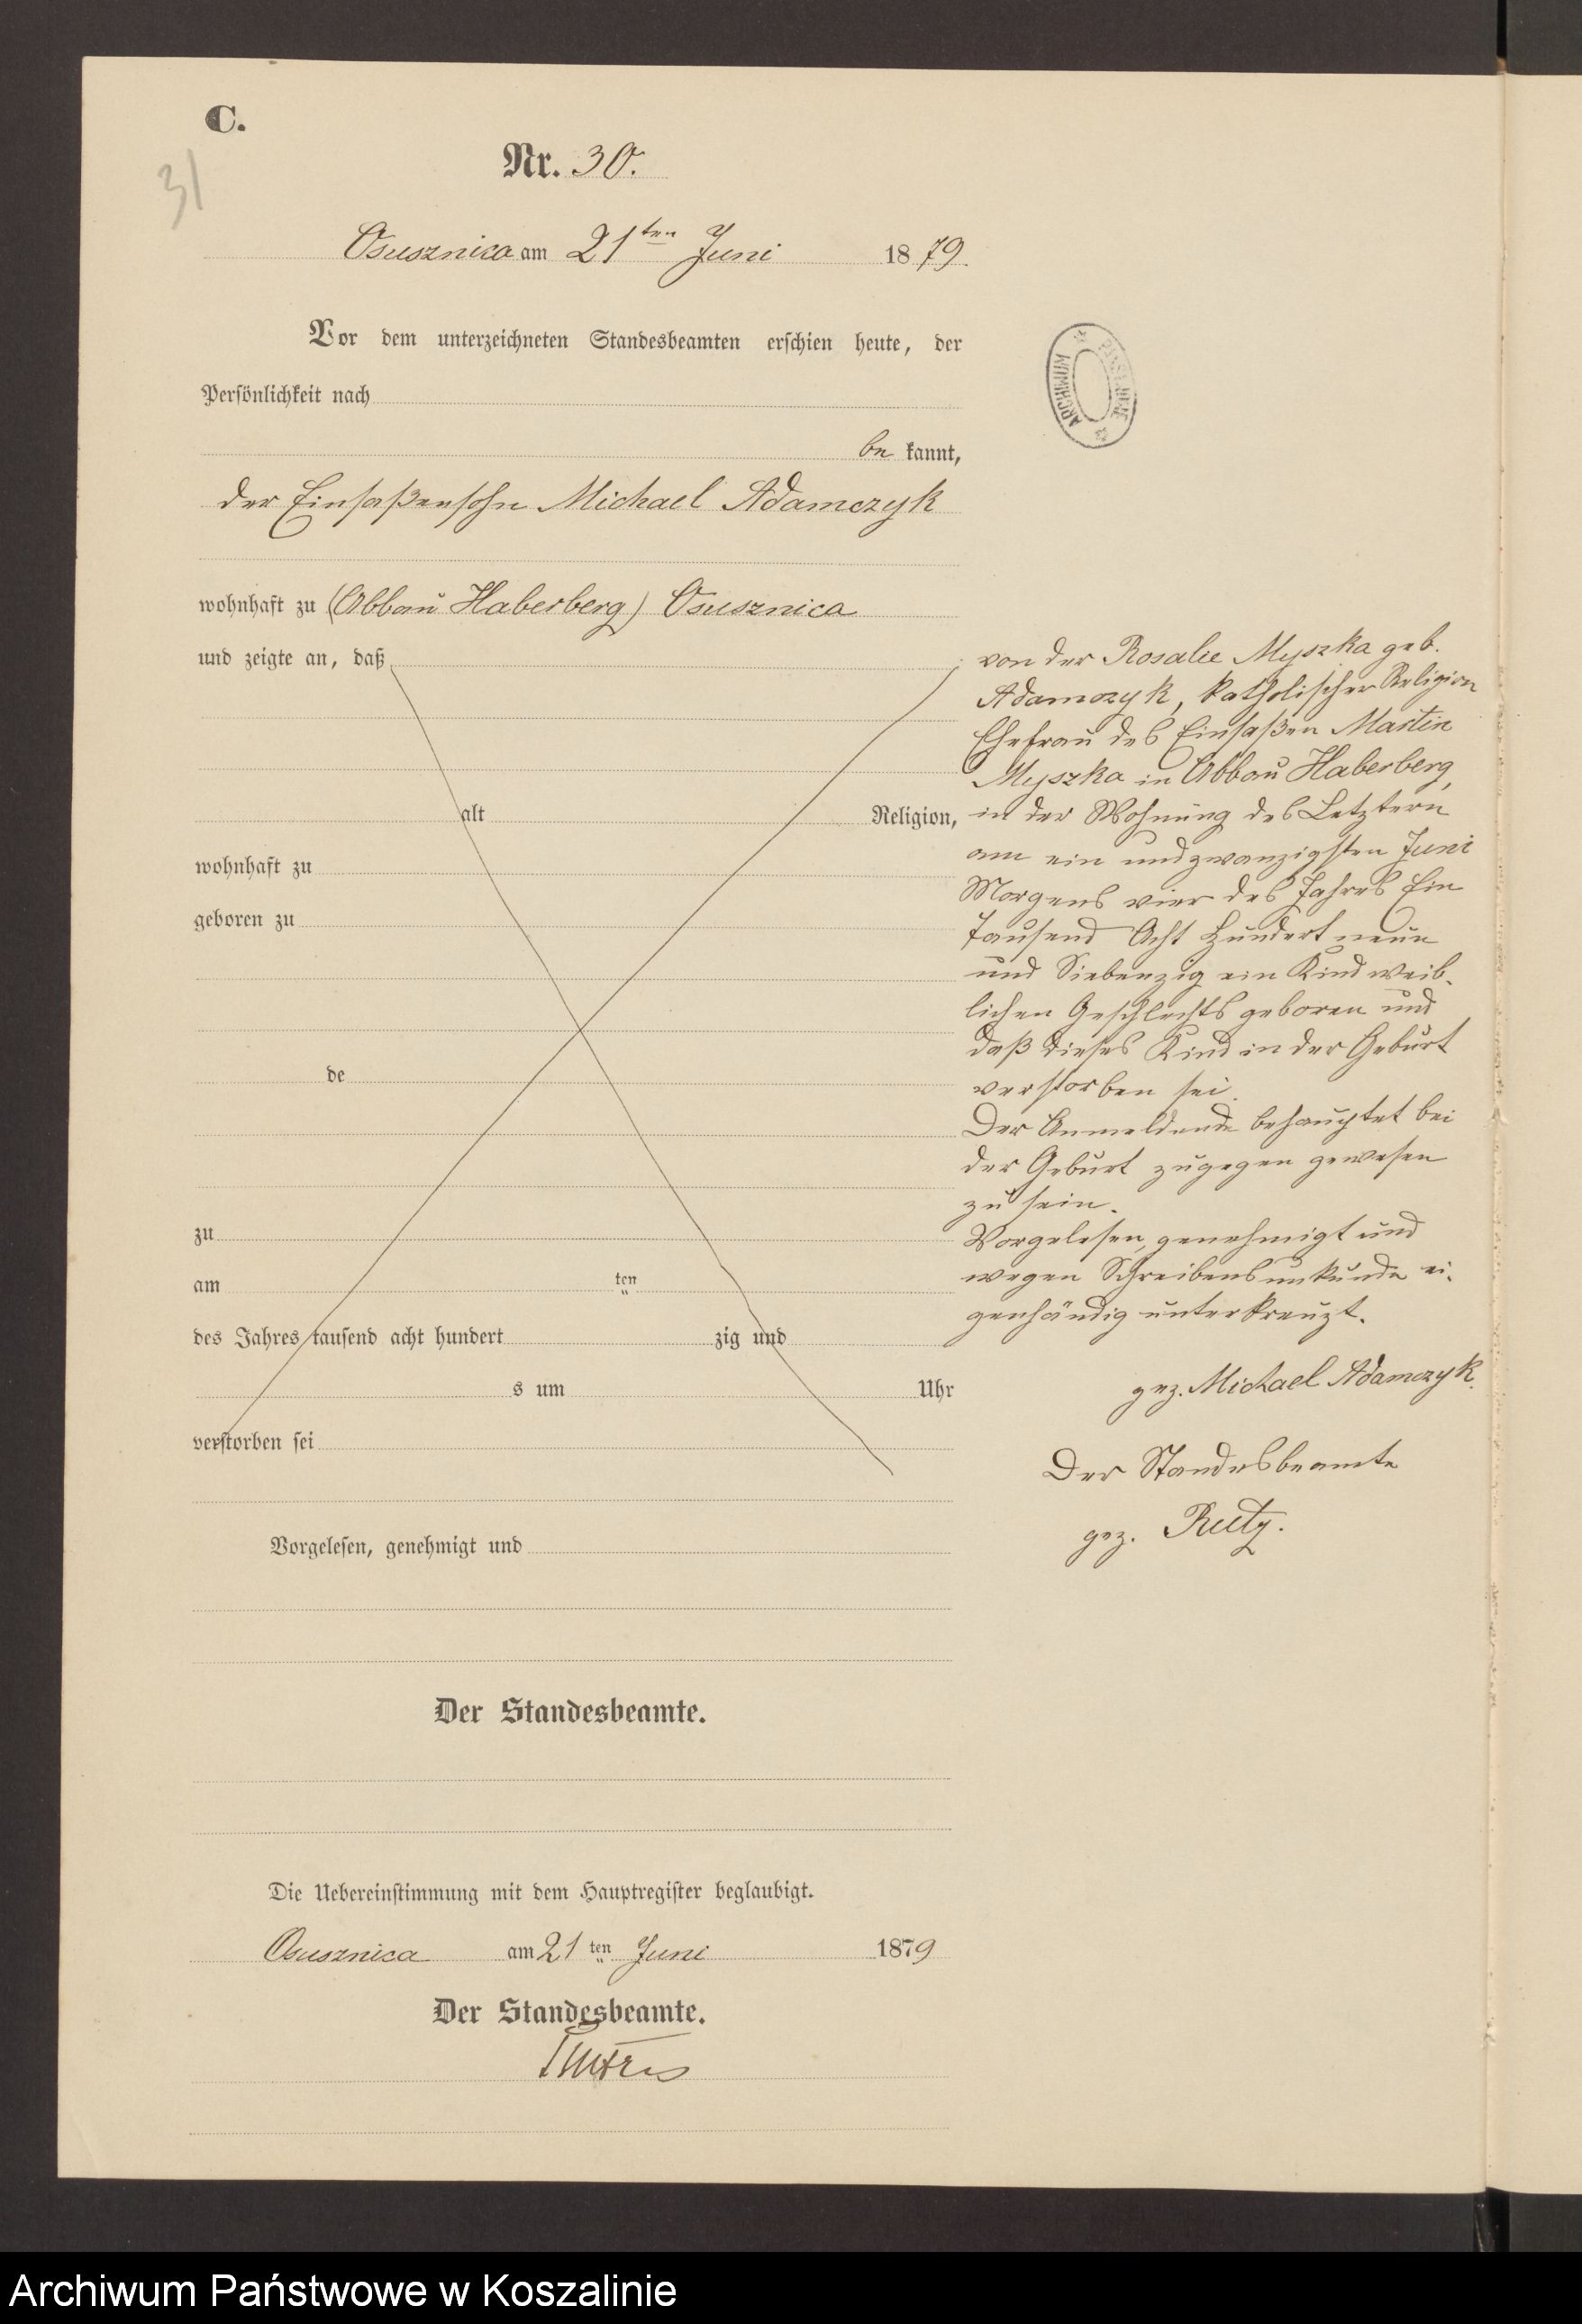 C.
31
Nr. 30.
Osusznica am 21ten Juni 1879.
Vor dem unterzeichneten Standesbeamten erschien heute, der
Persönlichkeit nach
be kannt,
der Einsaßensohn Michael Adamczyk
wohnhaft zu (Abbau Haberberg) Osusznica
und zeigte an, daß
alt Religion,
wohnhaft zu
geboren zu
de
zu
am ten
des Jahres tausend acht hundert zig und
s um Uhr
verstorben sei
Vorgelesen, genehmigt und
Der Standesbeamte.
von der Rosalie Myszka geb.
Adamczyk, katholischer Religion
Ehefrau des Einsaßen Martin
Myszka in Abbau Haberberg,
in der Wohnung des Letztern
am ein und zwanzigsten Juni
Morgens vier des Jahres Ein
Tausend Acht Hundert neun
und Siebenzig ein Kind weib-
lichen Geschlechts geboren und
daß dieses Kind in der Geburt
verstorben sei.
Der Anmeldende behauptet bei
der Geburt zugegen gewesen
zu sein.
Vorgelesen, genehmigt und
wegen Schreibensunkunde ei-
genhändig unterkreuzt.
gez. Michael Adamczyk.
Der Standesbeamte
gez. Rutz.
ARCHIWUM PAŃSTWOWE
Die Uebereinstimmung mit dem Hauptregister beglaubigt.
Osusznica am 21 ten Juni 1879
Der Standesbeamte.
Archiwum Państwowe w Koszalinie